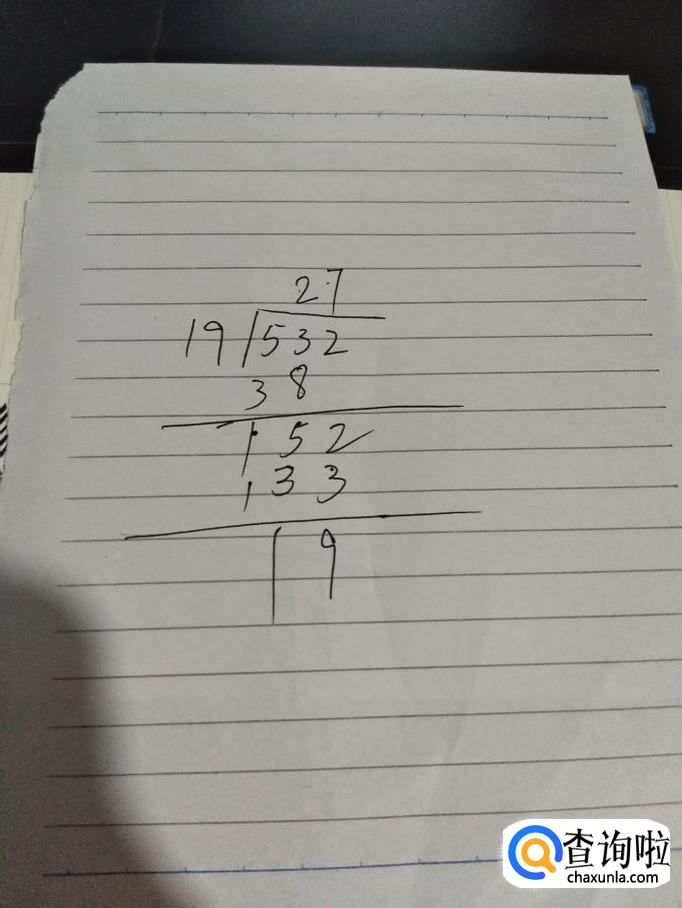 27
19 532
38
152
133
19
查询啦
chaxunla.com